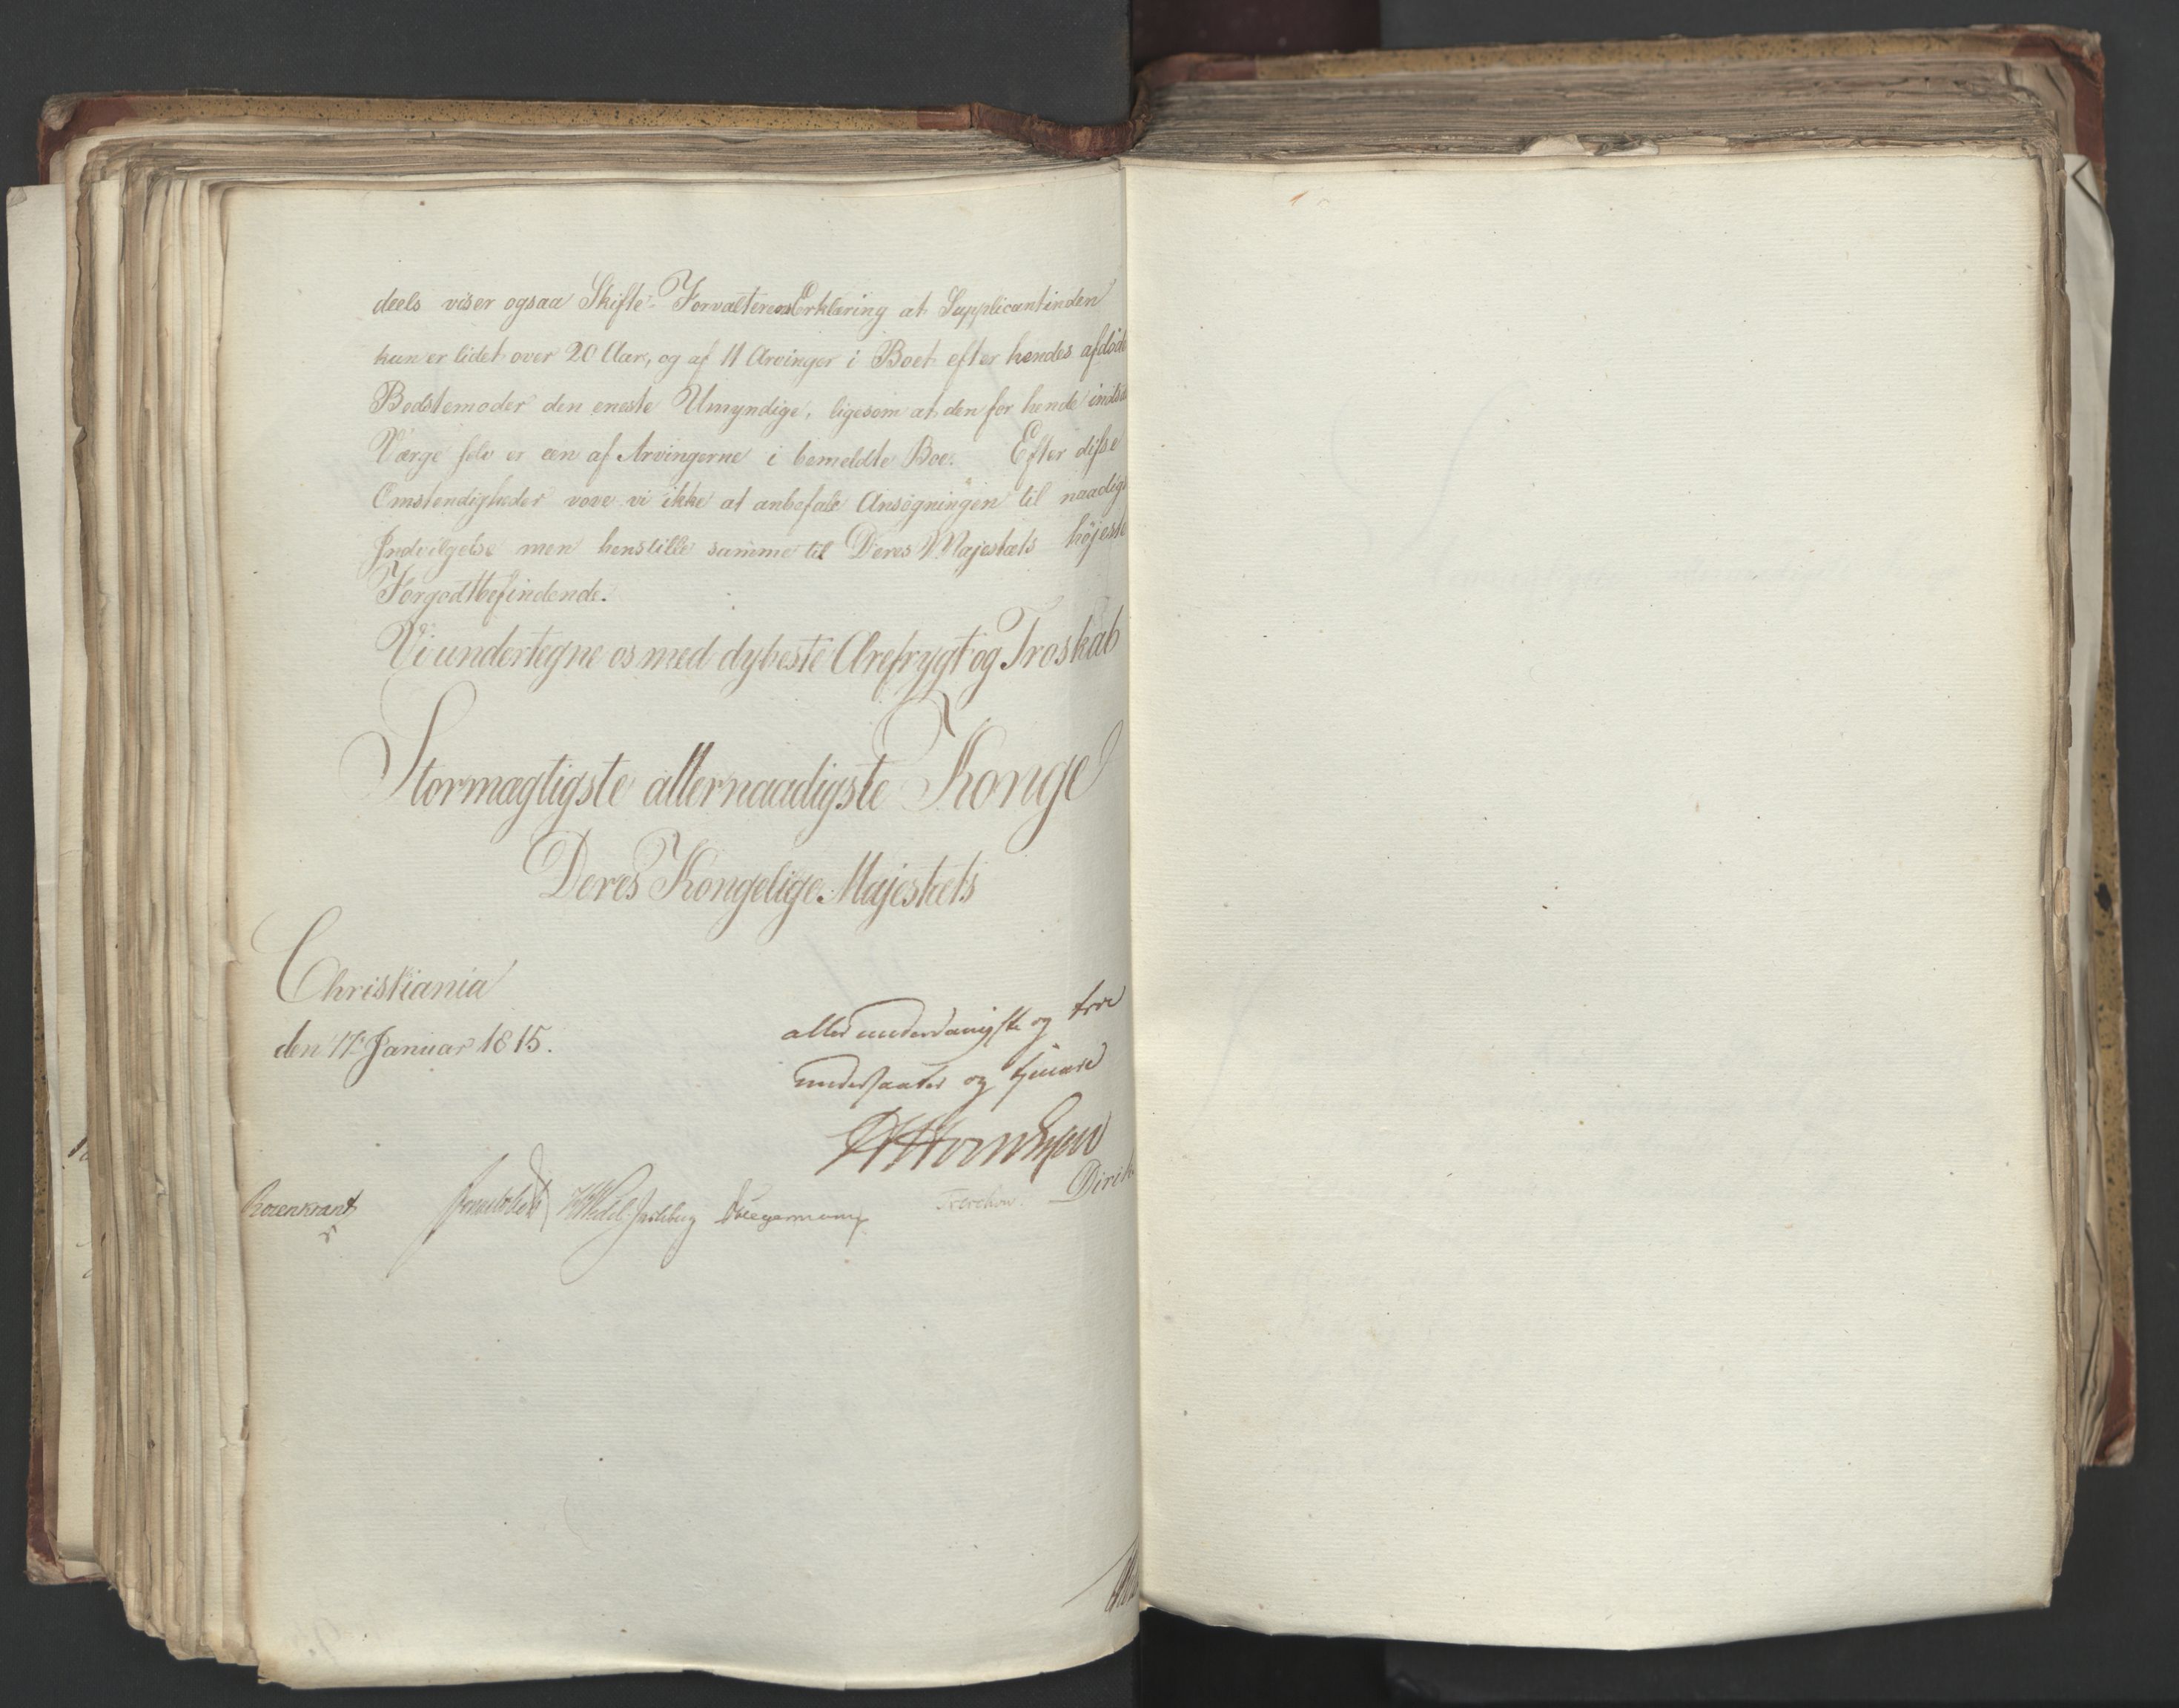 deels viser ogsaa Skifte-Forvalterens Erklæring at Supplicantinden
kun er lidet over 20 Aar, og af 11 Arvinger i Boet efter hendes afdöde
Bedstemoder den eneste Umyndige, ligesom at den for hende
Værge selv er een af Arvingerne i bemeldte Boe. Efter disse
Omstendigheder vove vi ikke at anbefale Ansøgningen til naadigs
Indvilgelse men henstille samme til Deres Majestæts höjeste
Forgodtbefindende.
Vi undertegne os med dybeste Ærefrygt og Troskab
Stormægtigste allernaadigste Konge
Deres Kongelige Majestæts
Christiania
den Januar 1815.
allerunderdanigste og troe
undersaatter og tjenere
Rosenkrantz Sommerhielm Wedel Jarlsberg Hegermann Treschow Dirik